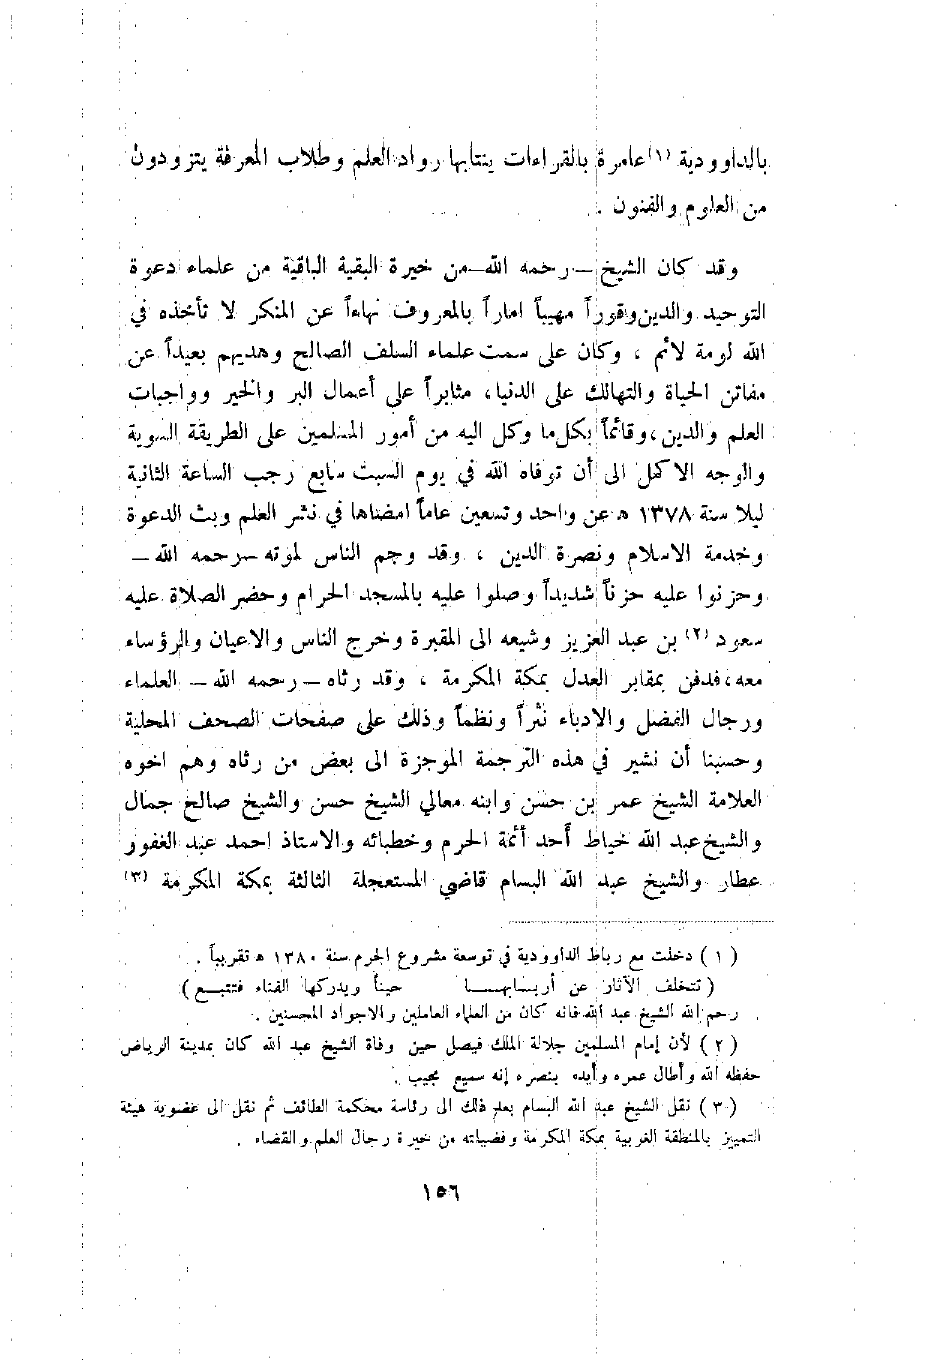 بالداوودية (١) عامرة بالقراءات ينتابها رواد العلم وطلاب المعرفة يتزودون
من العلوم والفنون .
وقد كان الشيخ – رحمه الله – من خيرة البقية الباقية من علماء دعوة
التوحيد والدين وقوراً مهيباً اماراً بالمعروف نهاءاً عن المنكر لا تأخذه في
الله لومة لائم ، وكان على سمت علماء السلف الصالح وهديهم بعيداً عن
مفاتن الحياة والتهالك على الدنيا، مثابراً على أعمال البر والخير وواجبات
العلم والدين ،وقائماً بكل ما وكل اليه من أمور المسلمين على الطريقة السوية
والوجه الاكمل الى أن توفاه الله في يوم السبت سابع رجب الساعة الثانية
ليلا سنة ١٣٧٨ ه عن واحد وتسعين عاماً امضاها في نشر العلم وبث الدعوة
وخدمة الاسلام ونصرة الدين ، وقد وجم الناس لموته – رحمه الله –
وحزنوا عليه حزناً شديداً وصلوا عليه بالمسجد الحرام وحضر الصلاة عليه
سعود (٢) بن عبد العزيز وشيعه الى المقبرة وخرج الناس والاعيان والرؤساء
معه، فدفن بمقابر العدل بمكة المكرمة ، وقد رثاه – رحمه الله – العلماء
ورجال الفضل والادباء نثراً ونظماً وذلك على صفحات الصحف المحلية
وحسبنا أن نشير في هذه الترجمة الموجزة الى بعض من رثاه وهم اخوه
العلامة الشيخ عمر بن حسن وابنه معالي الشيخ حسن والشيخ صالح جمال
والشيخ عبد الله خياط أحد أئمة الحرم وخطبائه والاستاذ احمد عبد الغفور
عطار والشيخ عبد الله البسام قاضي المستعجلة الثالثة بمكة المكرمة (٣)
(١) دخلت مع رباط الداوودية في توسعة مشروع الحرم سنة ١٣٨٠ ه تقريباً .
(تتخلف الآثار عن أربـابهــا حيناً ويدركها الفناء فتتبـع)
رحم الله الشيخ عبد الله فانه كان من العلماء العاملين والاجواد المحسنين .
(٢) لأن إمام المسلمين جلالة الملك فيصل حين وفاة الشيخ عبد الله كان بمدينة الرياض
حفظه الله وأطال عمره وأيده بنصره إنه سميع مجيب .
(٣) نقل الشيخ عبد الله البسام بعد ذلك الى رئاسة محكمة الطائف ثم نقل الى عضوية هيئة
التمييز بالمنطقة الغربية بمكة المكرمة وفضيلته من خيرة رجال العلم والقضاء .
١٥٦